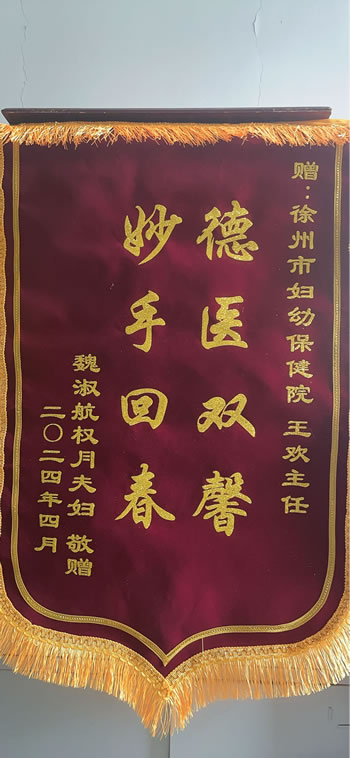 赠：徐州市妇幼保健院 王欢主任
德医双馨
妙手回春
魏淑航权月夫妇 敬赠
二〇二四年四月